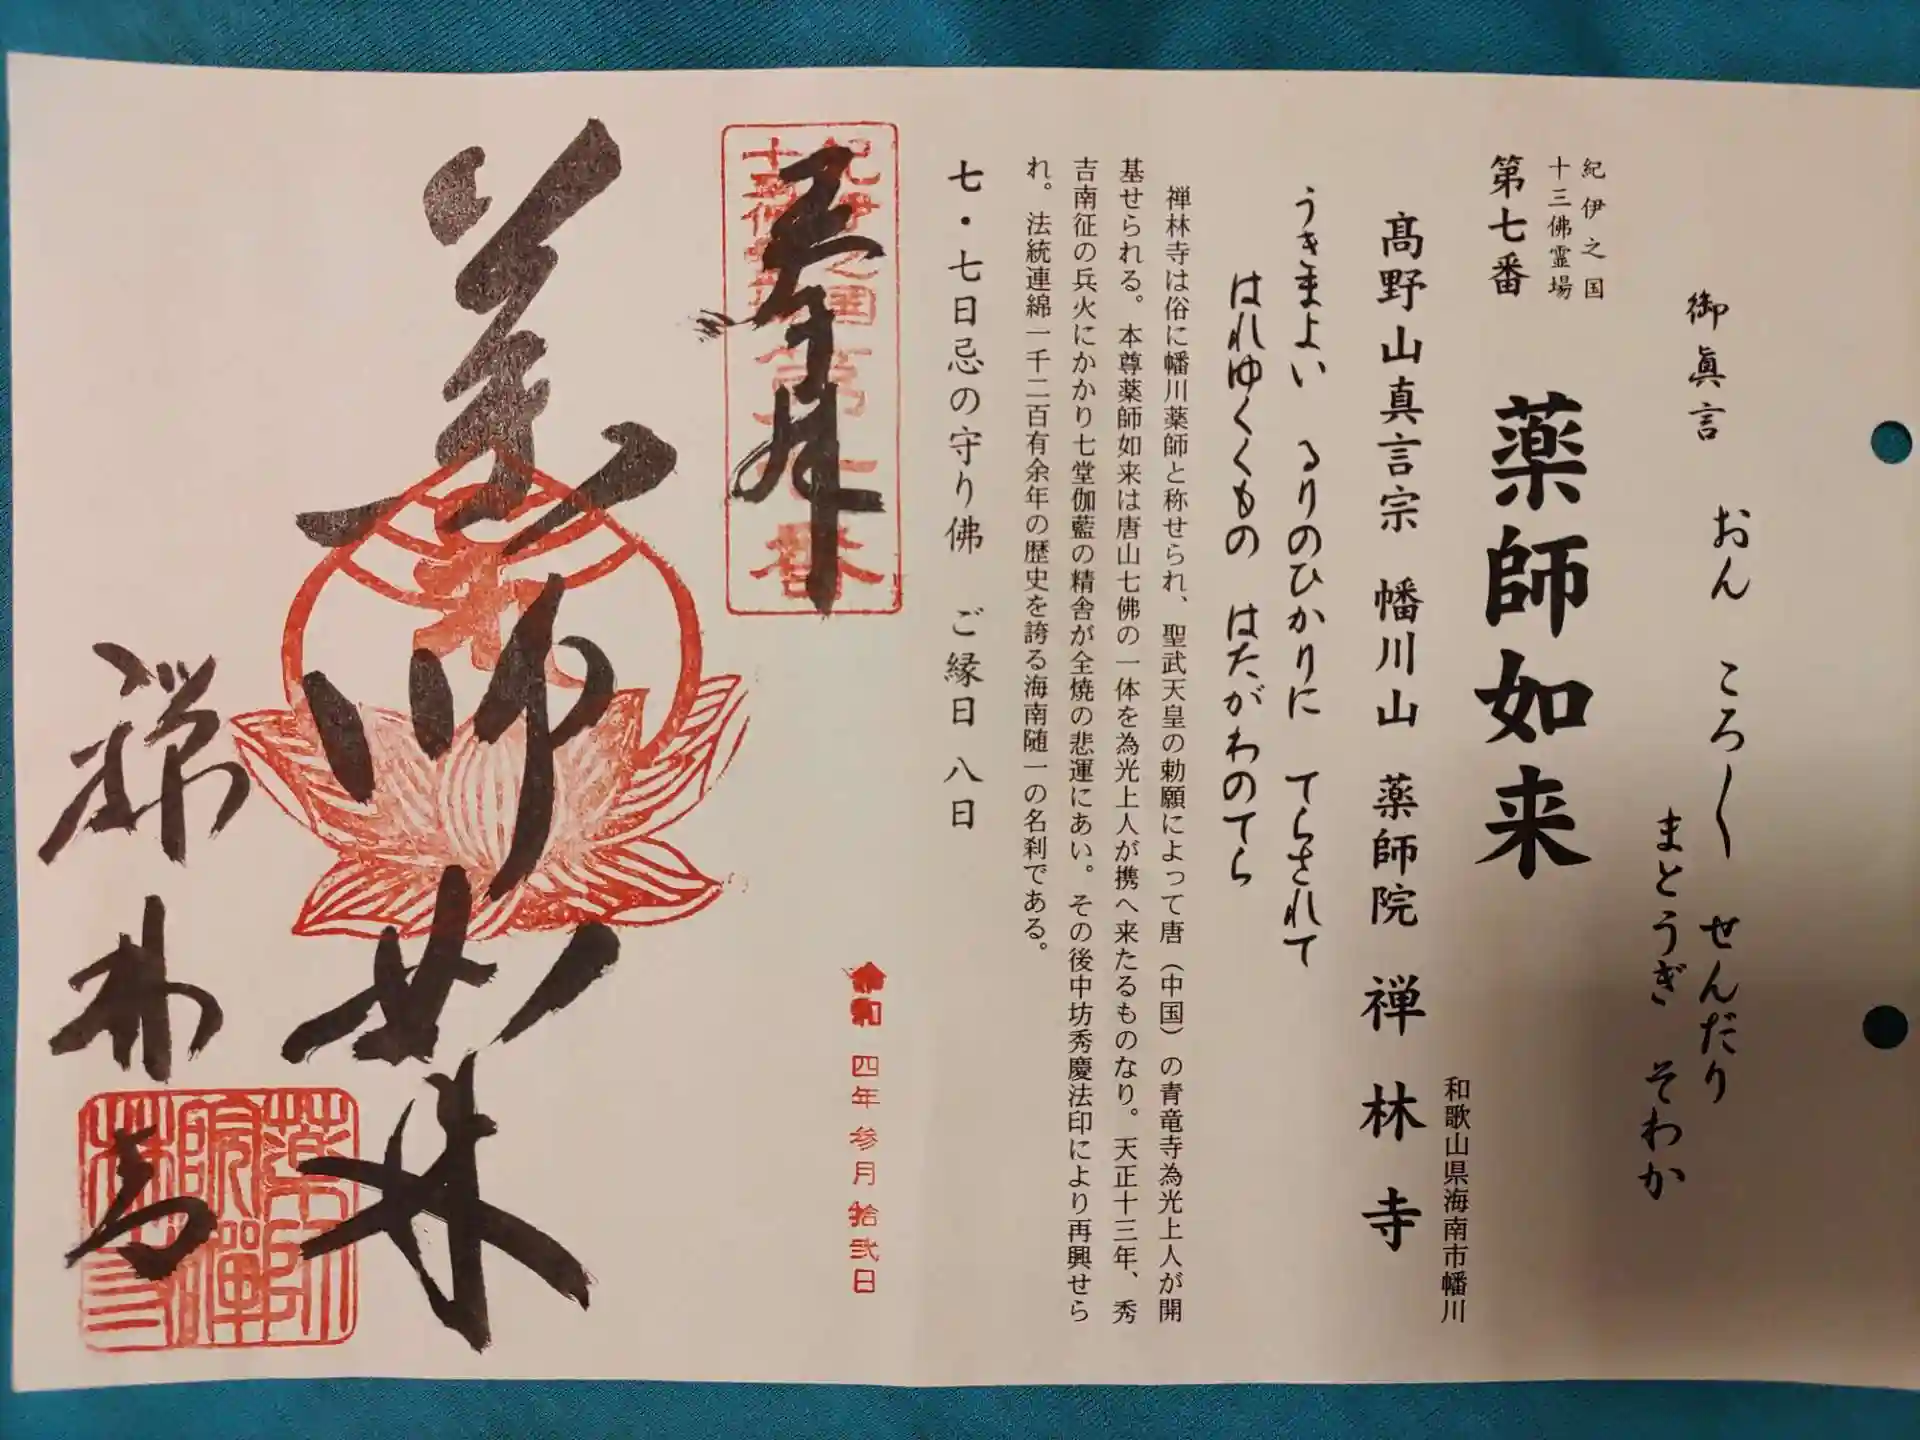 御眞言 おん ころ〳〵 せんだり
まとうぎ そわか
紀伊之国
十三佛霊場
第七番 薬師如来
和歌山県海南市幡川
髙野山真言宗 幡川山 薬師院 禅林寺
うきまよい るりのひかりに てらされて
はれゆくくもの はたがわのてら
禅林寺は俗に幡川薬師と称せられ、聖武天皇の勅願によって唐（中国）の青竜寺為光上人が開
基せられる。本尊薬師如来は唐山七佛の一体を為光上人が携へ来たるものなり。天正十三年、秀
吉南征の兵火にかかり七堂伽藍の精舎が全焼の悲運にあい。その後中坊秀慶法印により再興せら
れ。法統連綿一千二百有余年の歴史を誇る海南随一の名刹である。
七・七日忌の守り佛 ご縁日 八日
紀伊之国
十三佛霊場
第七番
奉拝
令和四年参月拾弐日
薬師如来
禅林寺
薬師院禅林寺